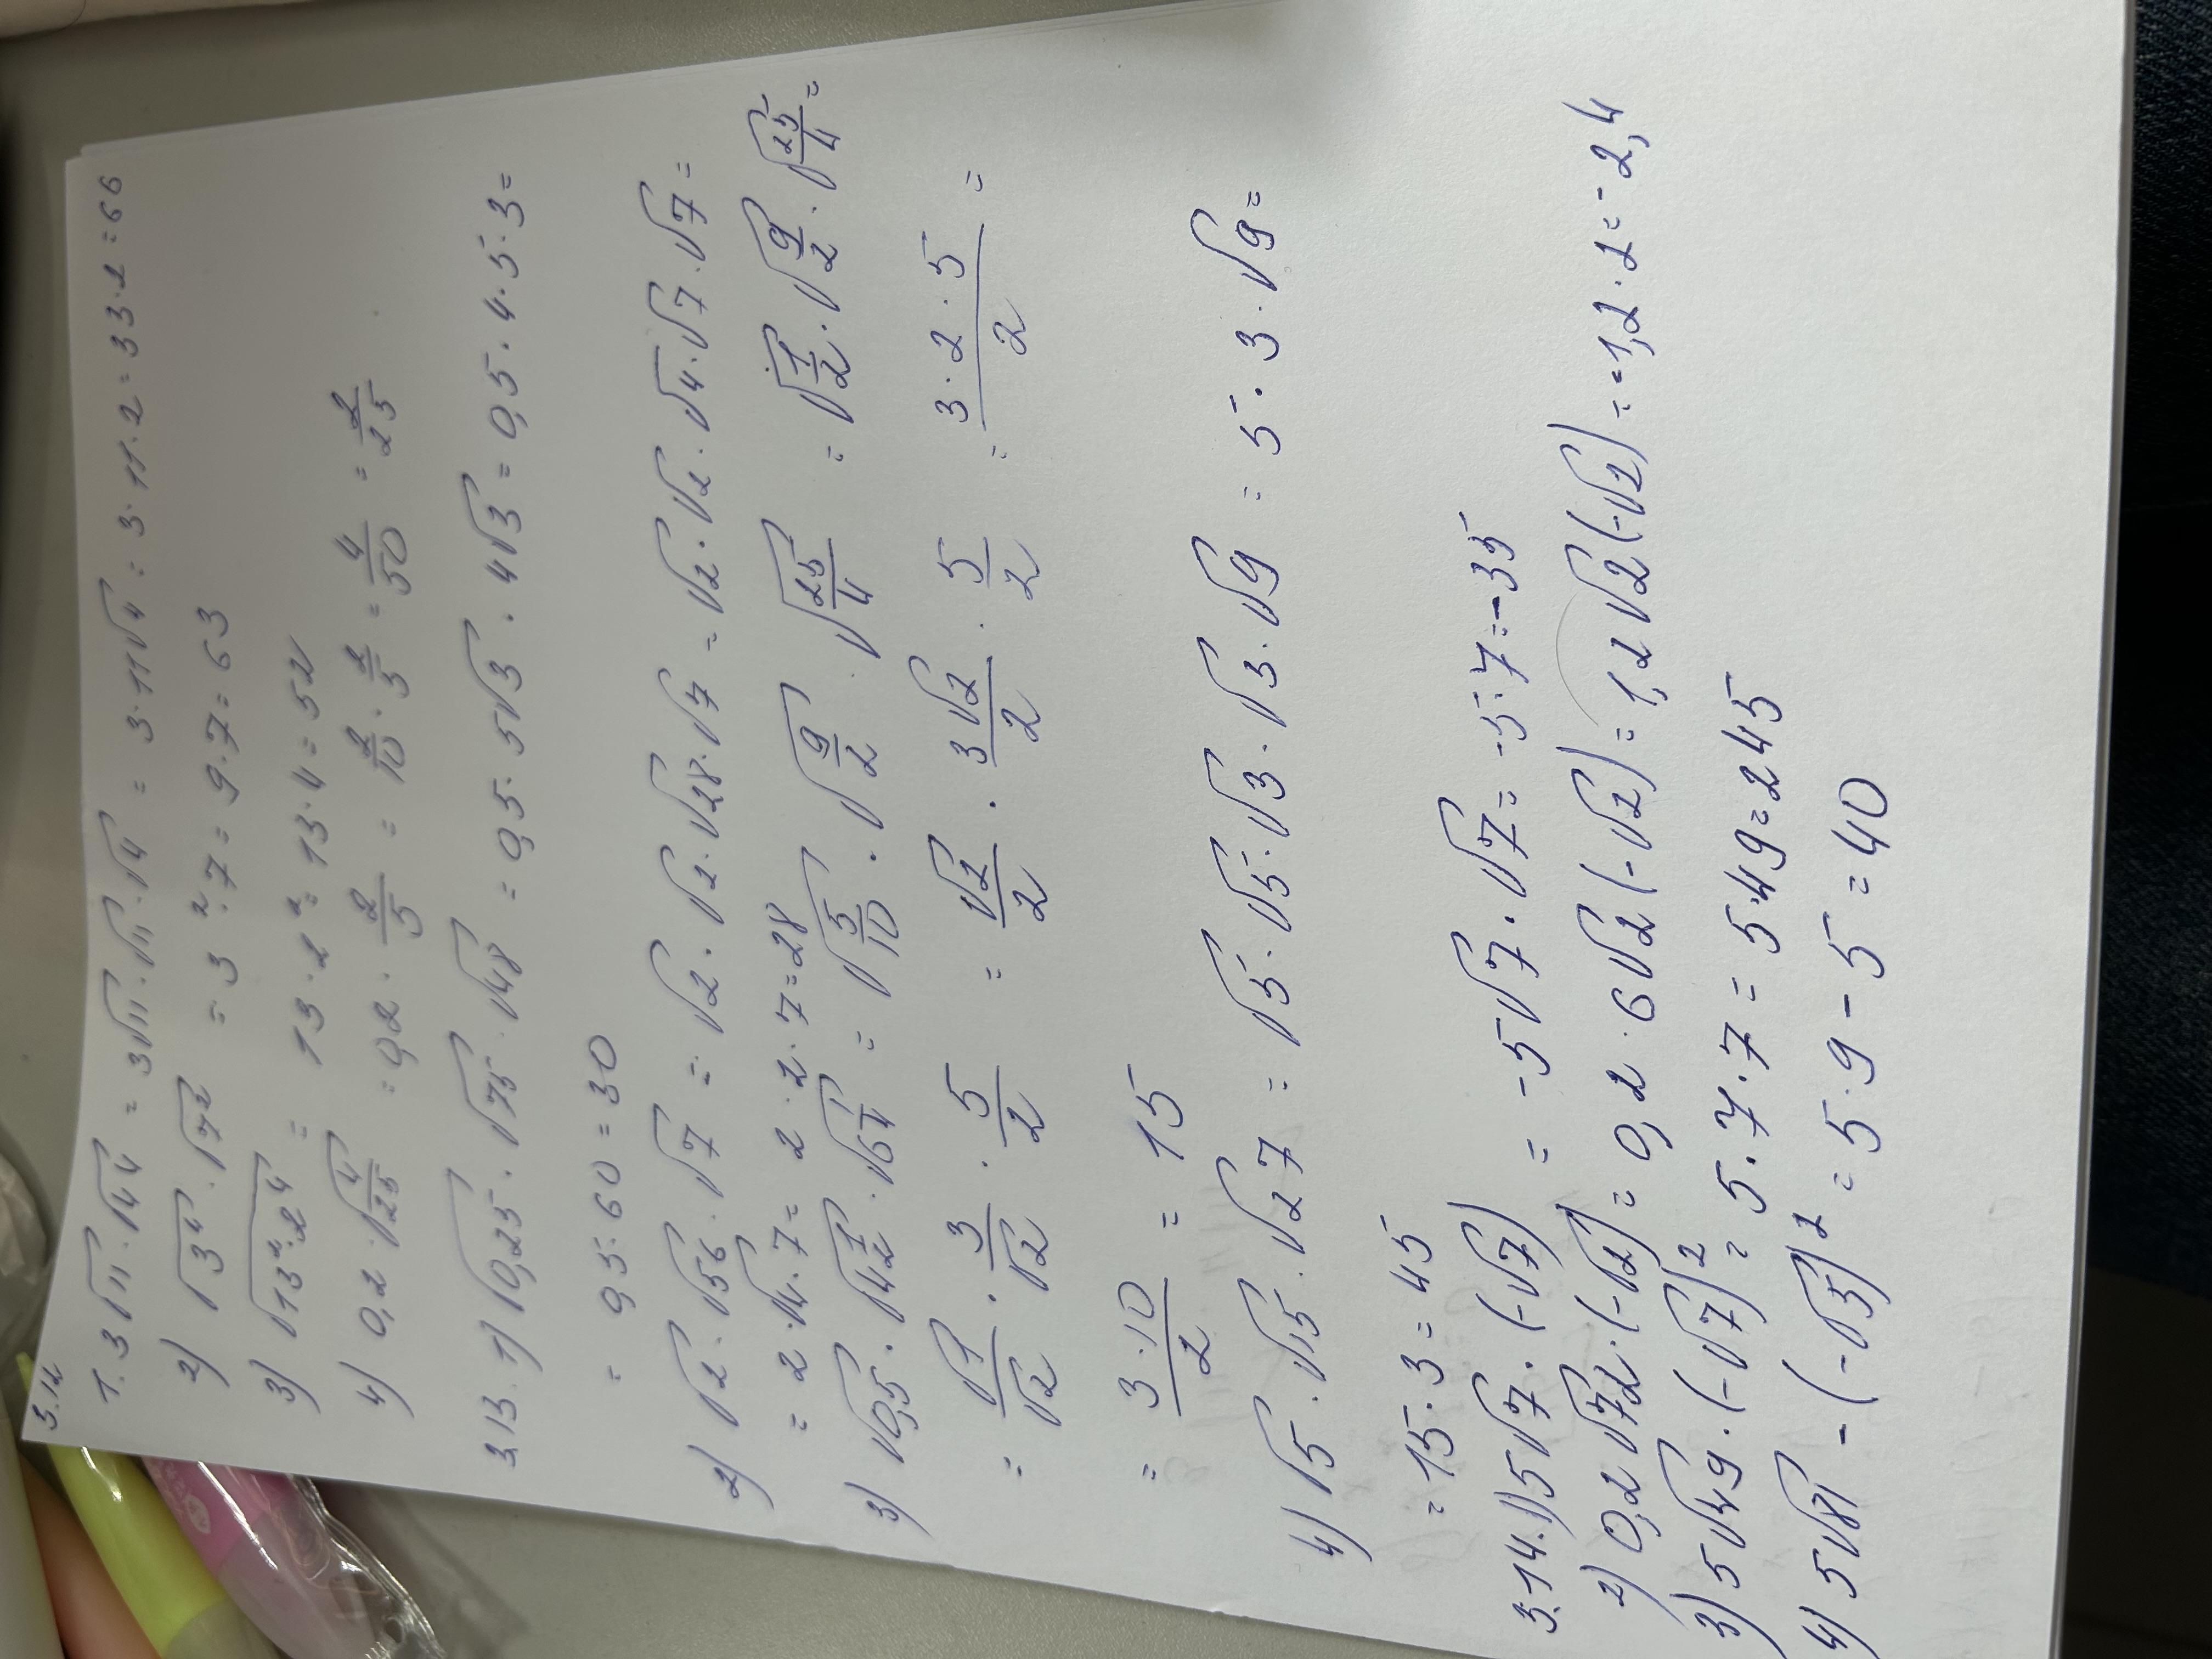 3.12
1. 3√11 · √44 = 3√11 · √11 · √4 = 3 · 11√4 = 3 · 11 · 2 = 33 · 2 = 66
2) √3⁴ · √7² = 3² · 7 = 9 · 7 = 63
3) √13² · 2⁴ = 13 · 2² = 13 · 4 = 52
4) 0,2 · √4/25 = 0,2 · 2/5 = 2/10 · 2/5 = 4/50 = 2/25
3.13. 1) √0,25 · √75 · √48 = 0,5 · 5√3 · 4√3 = 0,5 · 4 · 5 · 3 =
= 0,5 · 60 = 30
2) √2 · √56 · √7 = √2 · √2 · √28 · √7 = √2 · √2 · √4 · √7 · √7 =
= 2 · √4 · 7 = 2 · 2 · 7 = 28
3) √0,5 · √4 1/2 · √6 1/4 = √5/10 · √9/2 · √25/4 = √1/2 · √9/2 · √25/4 =
= √1/√2 · 3/√2 · 5/2 = √2/2 · 3√2/2 · 5/2 = 3 · 2 · 5/2 =
= 3 · 10/2 = 15
4) √5 · √15 · √27 = √5 · √5 · √3 · √3 · √9 = 5 · 3 · √9 =
= 15 · 3 = 45
3.14. 1) 5√7 · (-√7) = -5√7 · √7 = -5 · 7 = -35
2) 0,2√72 · (-√2) = 0,2 · 6√2 (-√2) = 1,2√2 (-√2) = -1,2 · 2 = -2,4
3) 5√49 · (-√7)² = 5 · 7 · 7 = 5 · 49 = 245
4) 5√81 - (-√5)² = 5 · 9 - 5 = 40